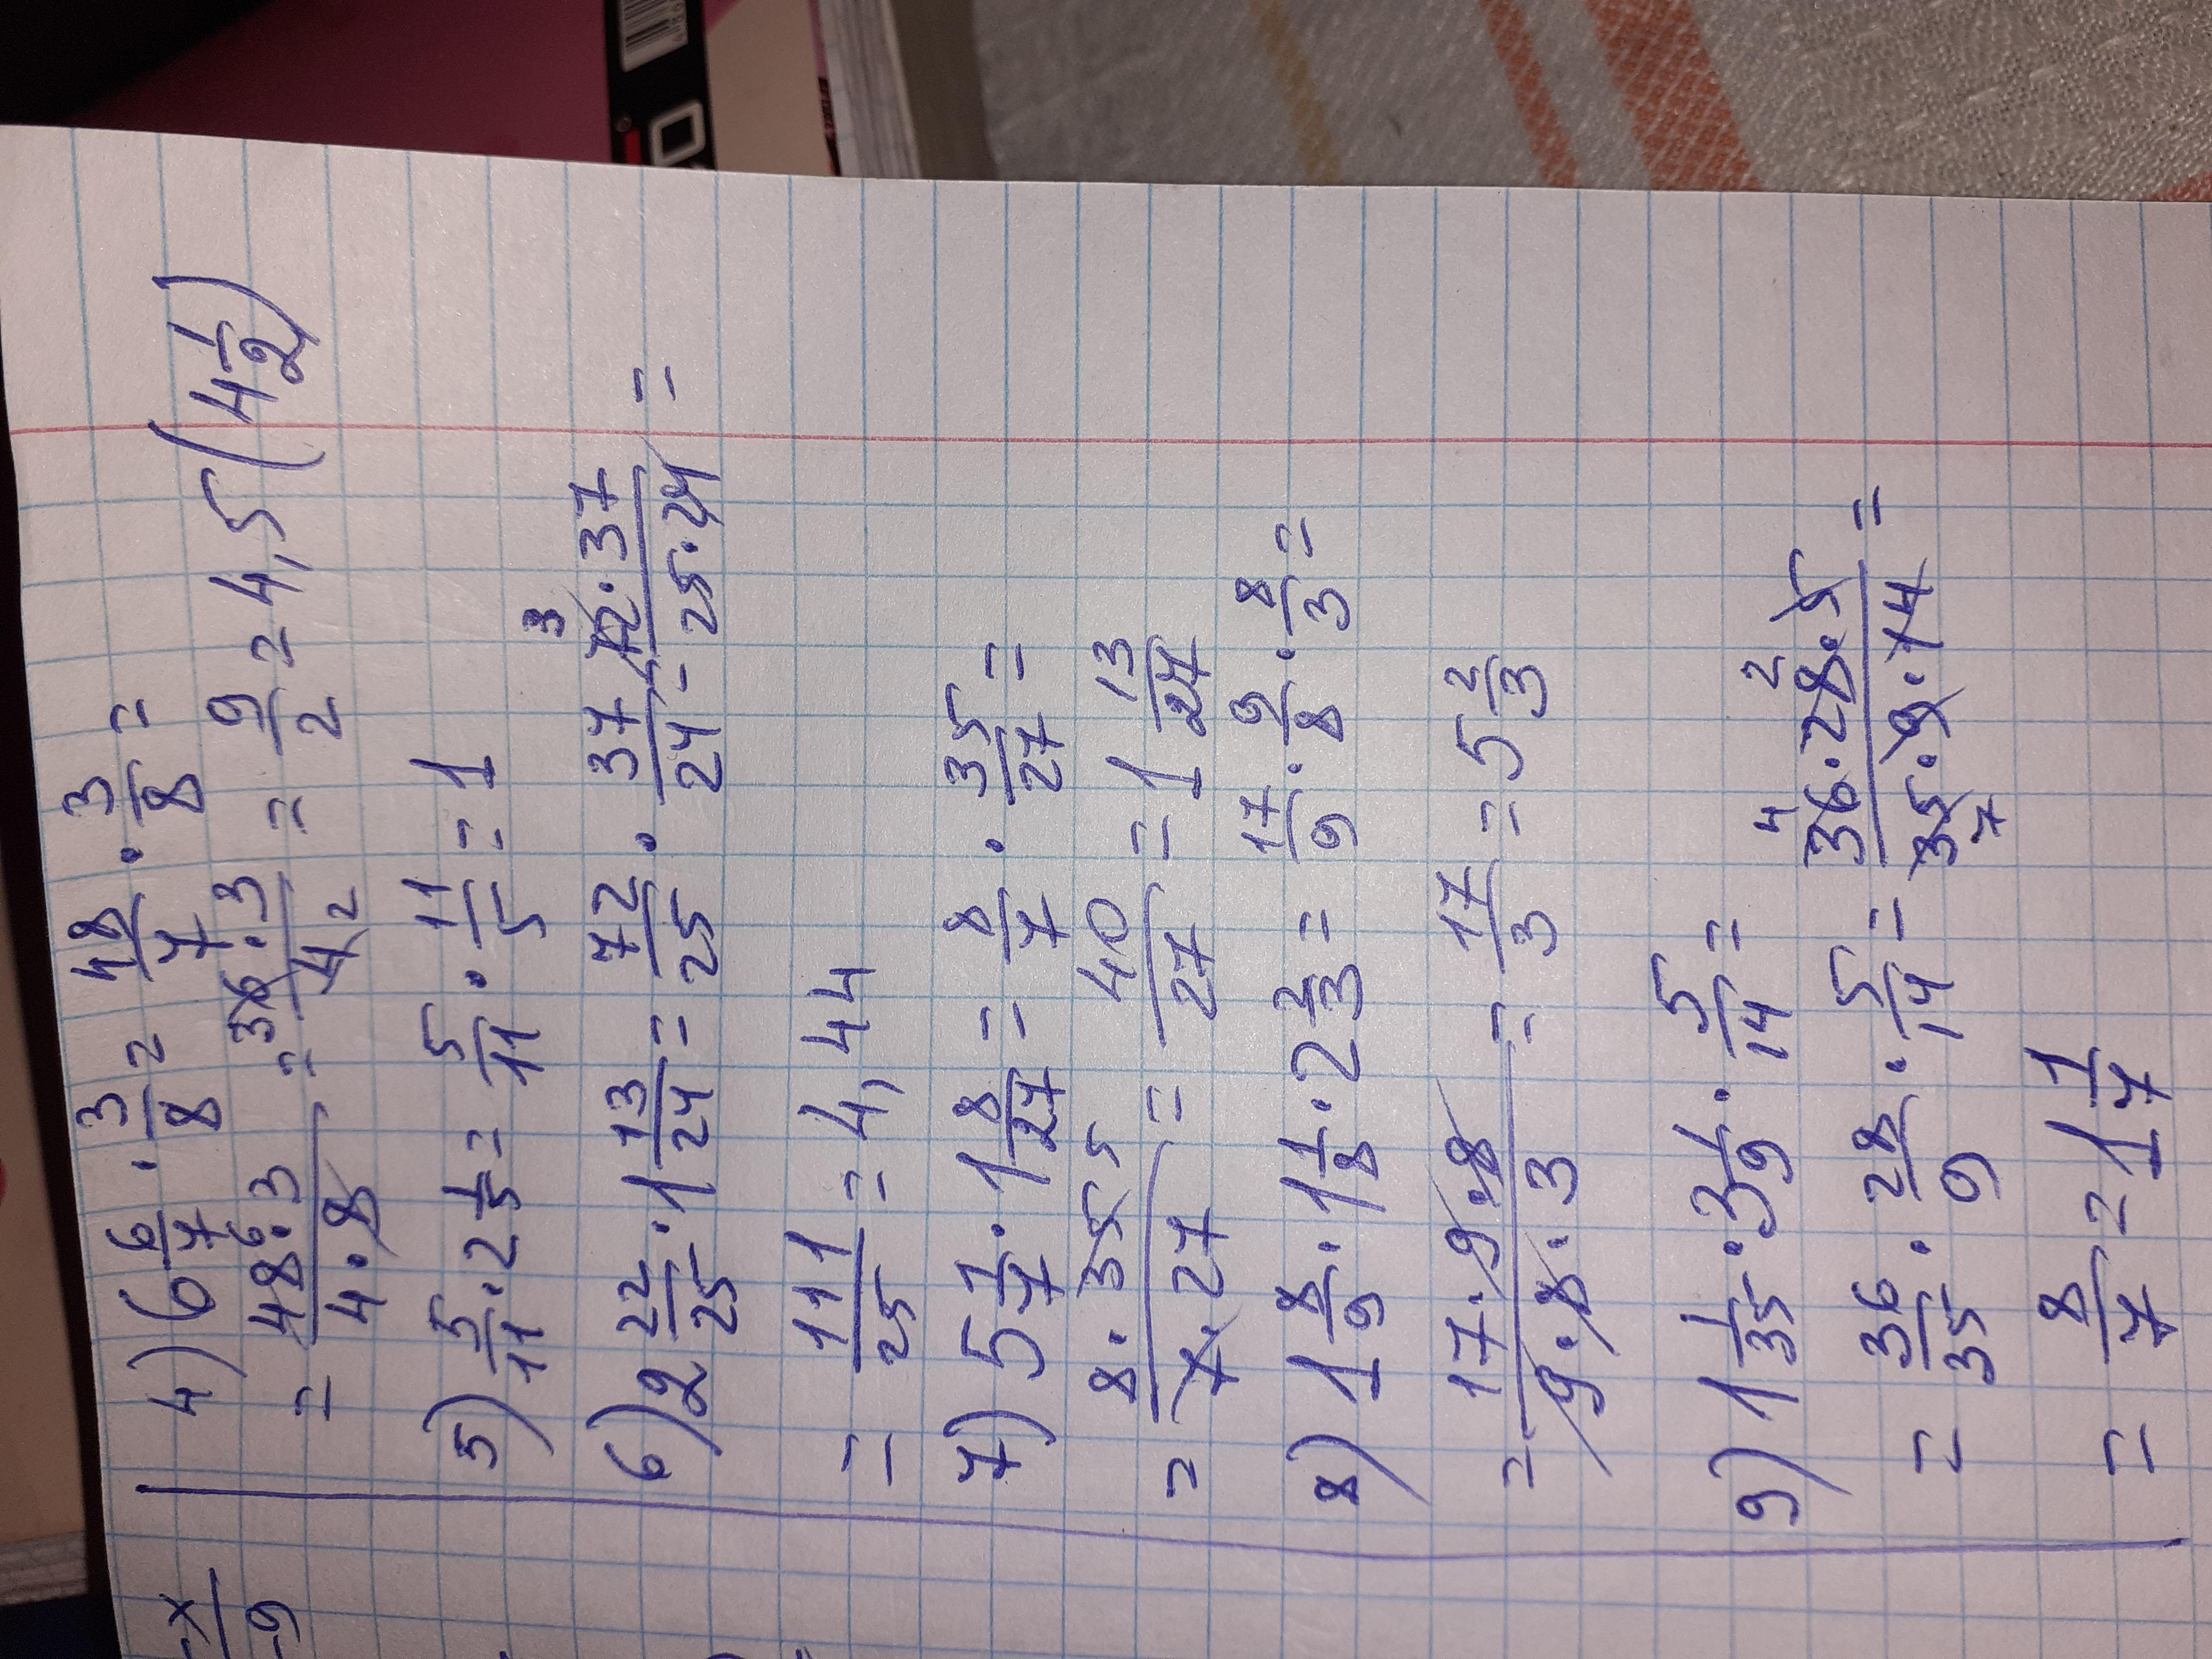 4) 6 6/7 · 3/8 = 48/7 · 3/8 =
= 48 6 · 3 / 4 · 8 = 36 · 3 / 4 2 = 9/2 = 4,5 (4 1/2)
5) 5/11 · 2 1/5 = 5/11 · 11/5 = 1
6) 2 22/25 · 1 13/24 = 72/25 · 37/24 = 3 72 · 37 / 25 · 24 =
= 111/25 = 4,44
7) 5 1/7 · 1 8/27 = 8/7 · 35/27 =
= 8 · 35 5 / 7 · 27 = 40/27 = 1 13/27
8) 1 8/9 · 1 1/8 · 2 2/3 = 17/9 · 9/8 · 8/3 =
= 17 · 9 · 8 / 9 · 8 · 3 = 17/3 = 5 2/3
9) 1 1/35 · 3 1/9 · 5/14 =
= 36/35 · 28/9 · 5/14 = 4 36 · 2 28 · 5 / 35 7 · 9 · 14 =
= 8/7 = 1 1/7
x
9